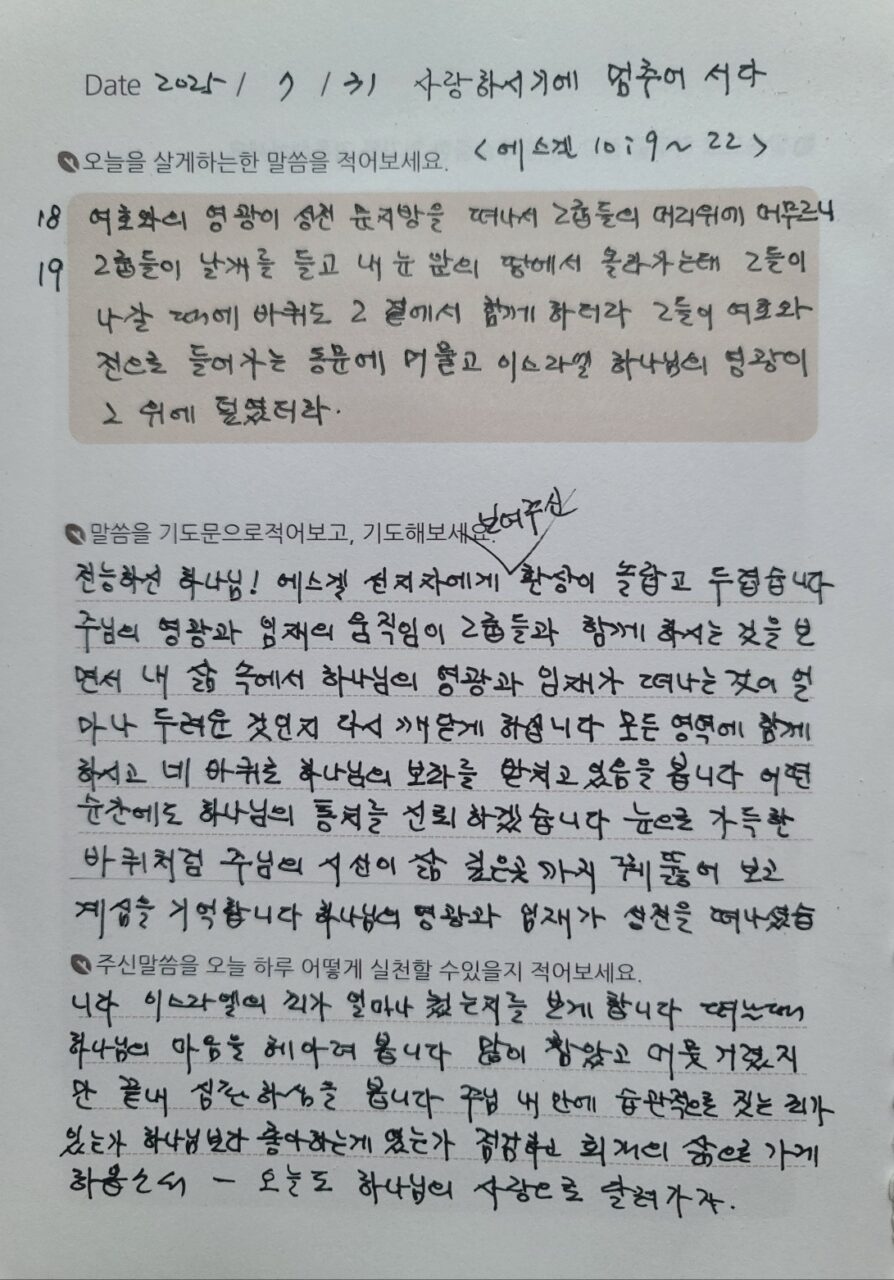 Date 2025 / 7 / 31 사랑하시기에 멈추어 서다
오늘을 살게하는한 말씀을 적어보세요. <에스겔 10:9~22>
18 여호와의 영광이 성전 문지방을 떠나서 그룹들의 머리위에 머무르니
19 그룹들이 날개를 들고 내 눈 앞의 땅에서 올라가는데 그들이
나갈 때에 바퀴도 그 곁에서 함께 하더라 그들이 여호와
전으로 들어가는 동문에 머물고 이스라엘 하나님의 영광이
그 위에 덮였더라.
말씀을 기도문으로적어보고, 기도해보세요.
보여주신
전능하신 하나님! 에스겔 선지자에게 환상이 놀랍고 두렵습니다
주님의 영광과 임재의 움직임이 그룹들과 함께 하시는 것을 보
면서 내 삶 속에서 하나님의 영광과 임재가 떠나는 것이 얼
마나 두려운 것인지 다시 깨닫게 하십니다 모든 영역에 함께
하시고 네 바퀴로 하나님의 보좌를 받치고 있음을 봅니다 어떤
순간에도 하나님의 통치를 신뢰하겠습니다 눈으로 가득한
바퀴처럼 주님의 시선이 삶 깊은곳 까지 꿰뚫어 보고
계심을 기억합니다 하나님의 영광과 임재가 성전을 떠나셨습
주신말씀을 오늘 하루 어떻게 실천할 수있을지 적어보세요.
니다 이스라엘의 죄가 얼마나 컸는지를 보게 합니다 떠는때
하나님의 마음을 헤아려 봅니다 많이 참았고 머뭇 거렸지
만 끝내 심판하심을 봅니다 주님 내 안에 습관적으로 짓는 죄가
있는가 하나님보다 좋아하는게 있는가 점검하고 회개의 삶으로 가게
하옵소서 - 오늘도 하나님의 사랑으로 달려가자.